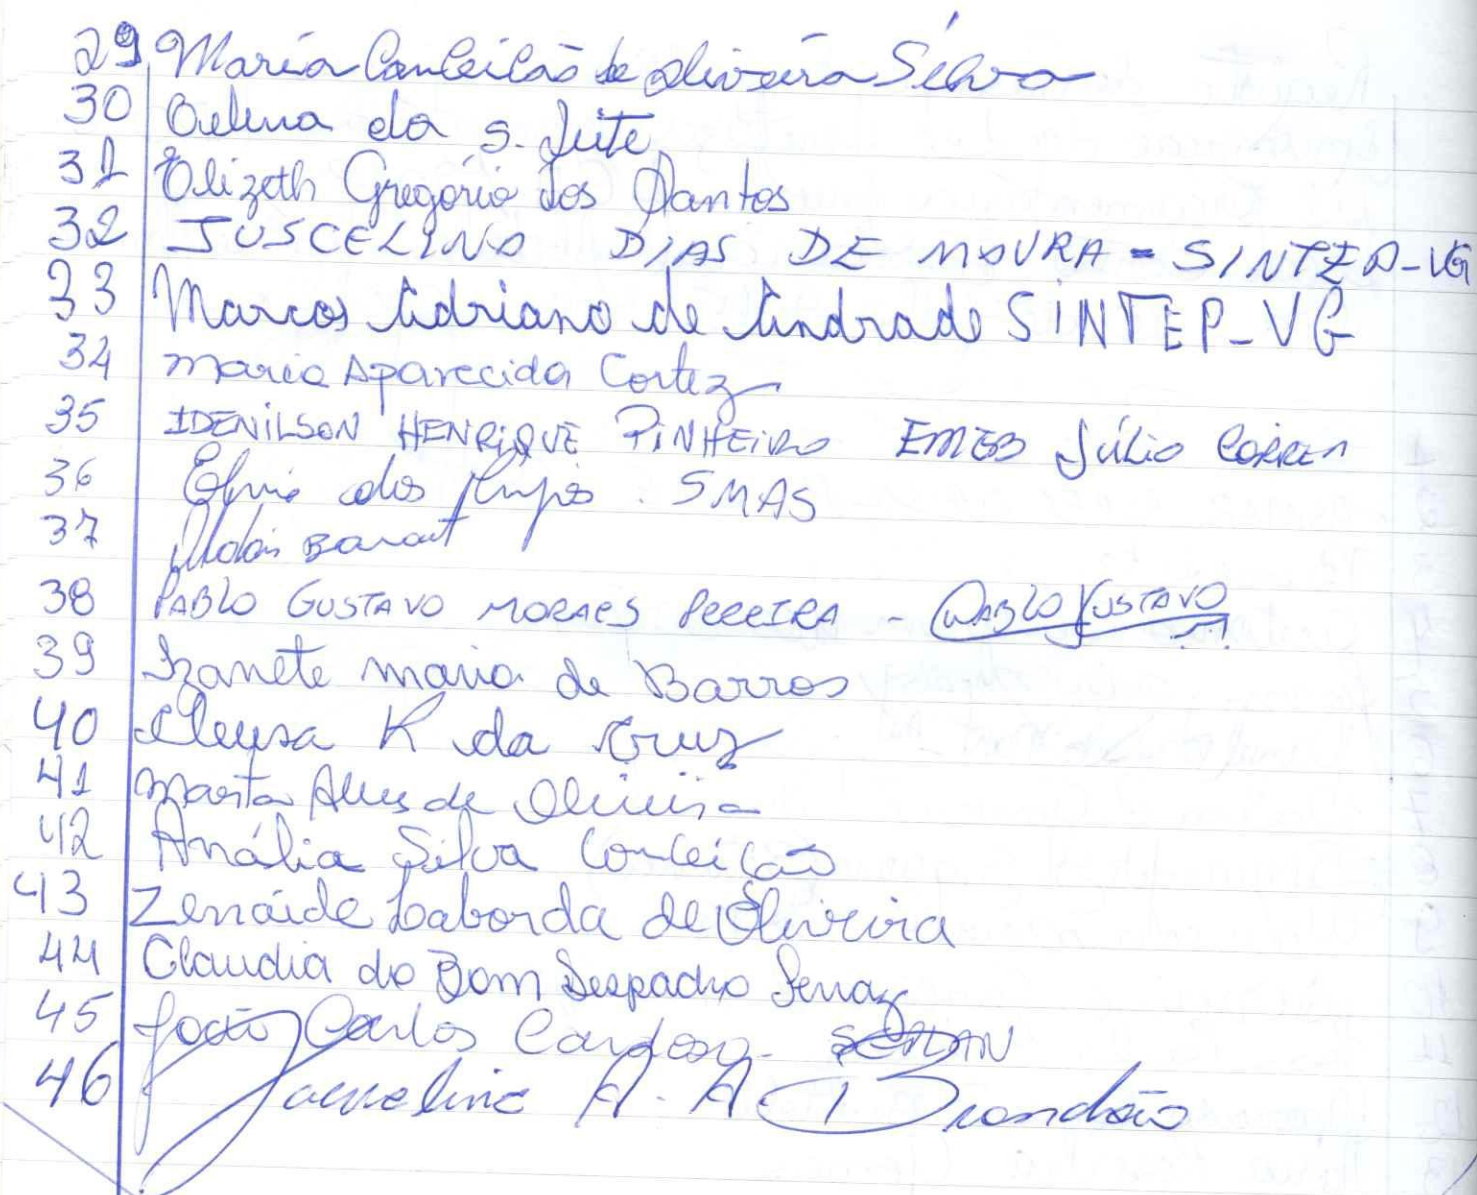 29 Maria Conceição de Oliveira Silva
30 da S. Leite
31 Elizeth Gregório dos Santos
32 JUSCELINO DIAS DE MOURA - SINTEP-VG
33 Marcos Adriano de Andrade SINTEP-VG
34 Maria Aparecida Cortez
35 IDENILSON HENRIQUE PINHEIRO EMEB Júlio CORREA
36 dos Anjos . SMAS
37
38 PABLO GUSTAVO MORAES PEREIRA - PABLO GUSTAVO
39 Izanete Maria de Barros
40 Cleusa R da Cruz
41 Marta Alves de Oliveira
42 Anália Silva Conceição
43 Zenaide Laborda de Oliveira
44 Claudia do Bom Despacho Ferraz
45 João Carlos Cardoso - SEPLAN
46 Jacqueline A. A. Brandão